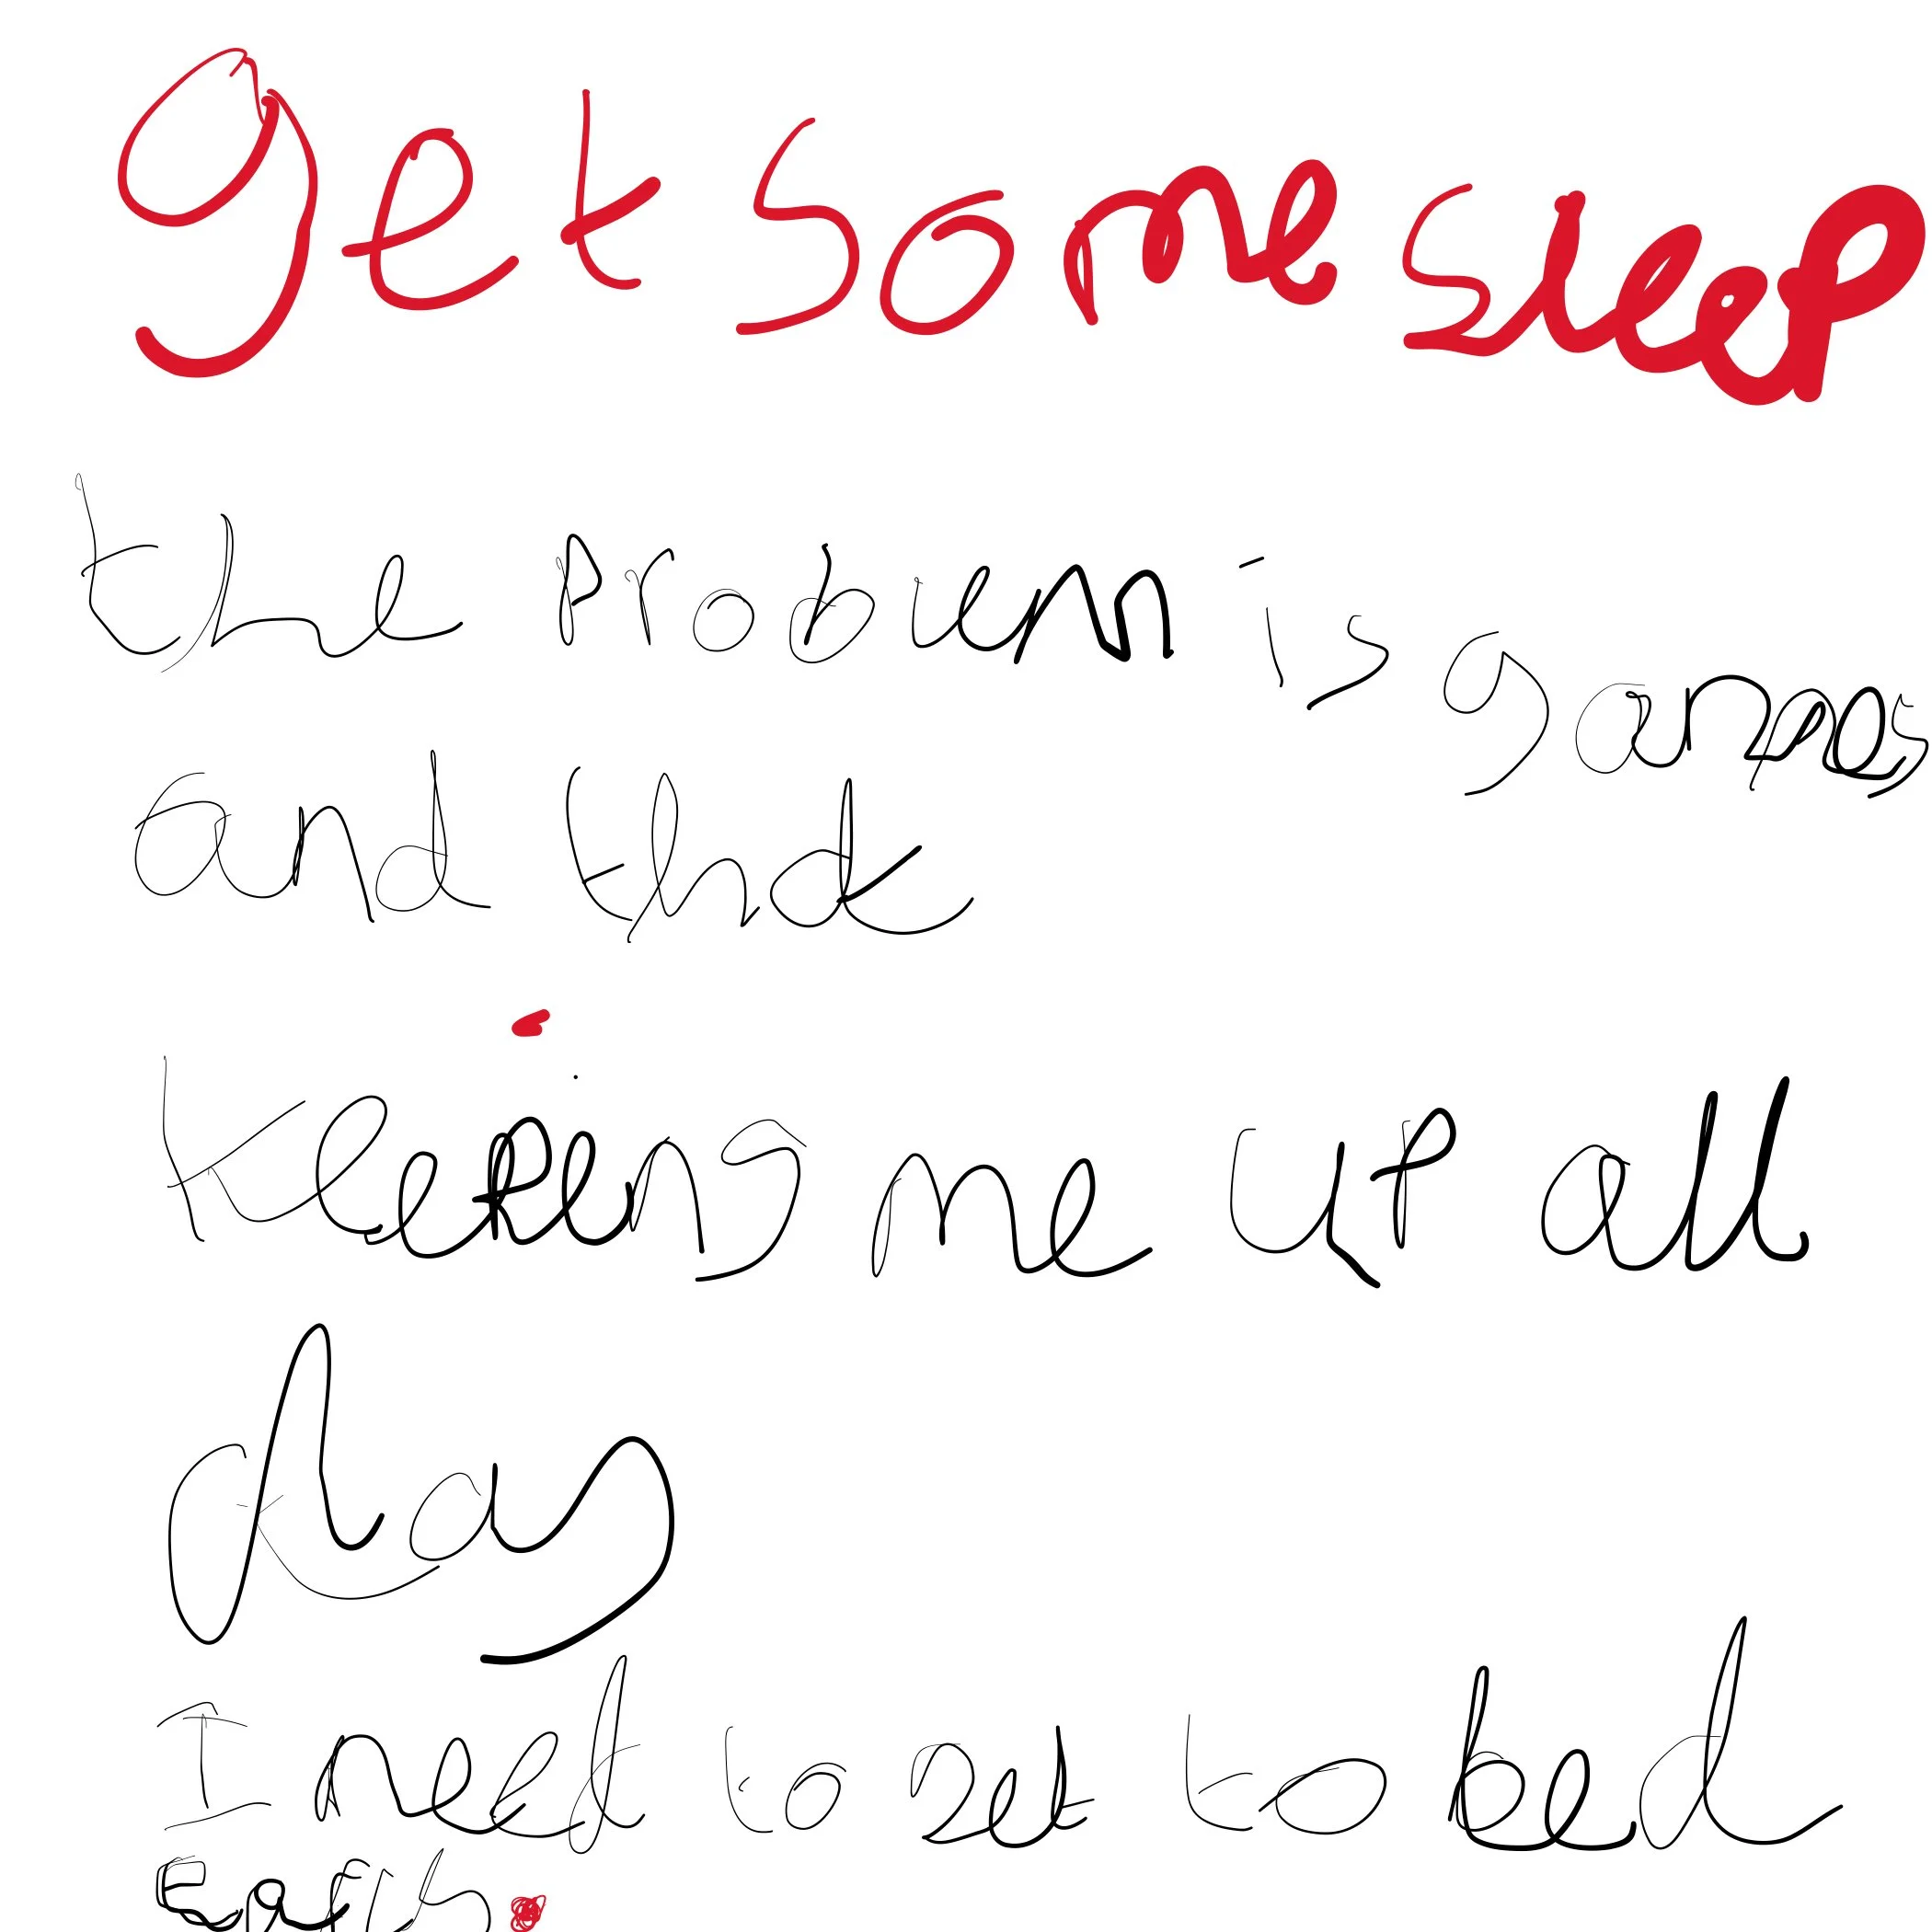 get some sleep
the Problem is games
and that
keeping me up all
day
I need to get to bed